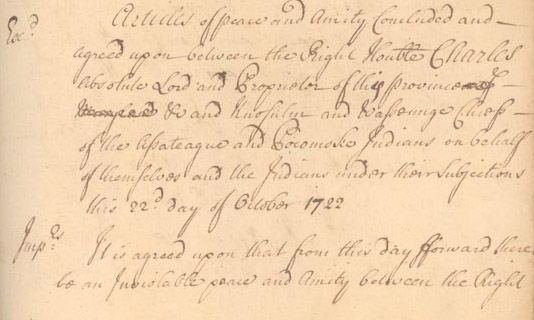 Articles of peace and Amity Concluded and
Exd.
agreed upon between the Right Honble Charles
Absolute Lord and Proprietor of this province of
&c and Knosulm and Wassounge Chiefs
of the Assateague and Pocomoke Indians on behalf
of themselves and the Indians under their Subjections
this 22d. day of October 1722
Imprs. It is agreed upon that from this day fforward there
be an Inviolable peace and Amity between the Right